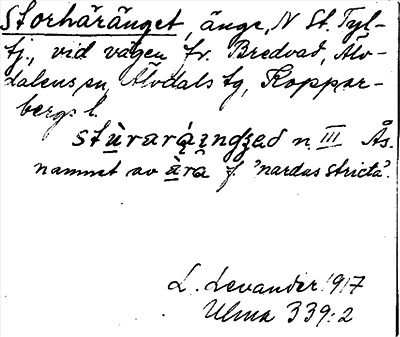 Storhäränget, änge, N St. Tyl-
tj., vid vägen fr. Bredvad, Älv-
dalens sn, Älvdals tg, Koppar-
bergs l.
stùrarą́ı̨ndʒed n. III Ås.
namnet av ą̀rą̂ f. 'nardus stricta'.
L. Levander 1917
Ulma 339:2